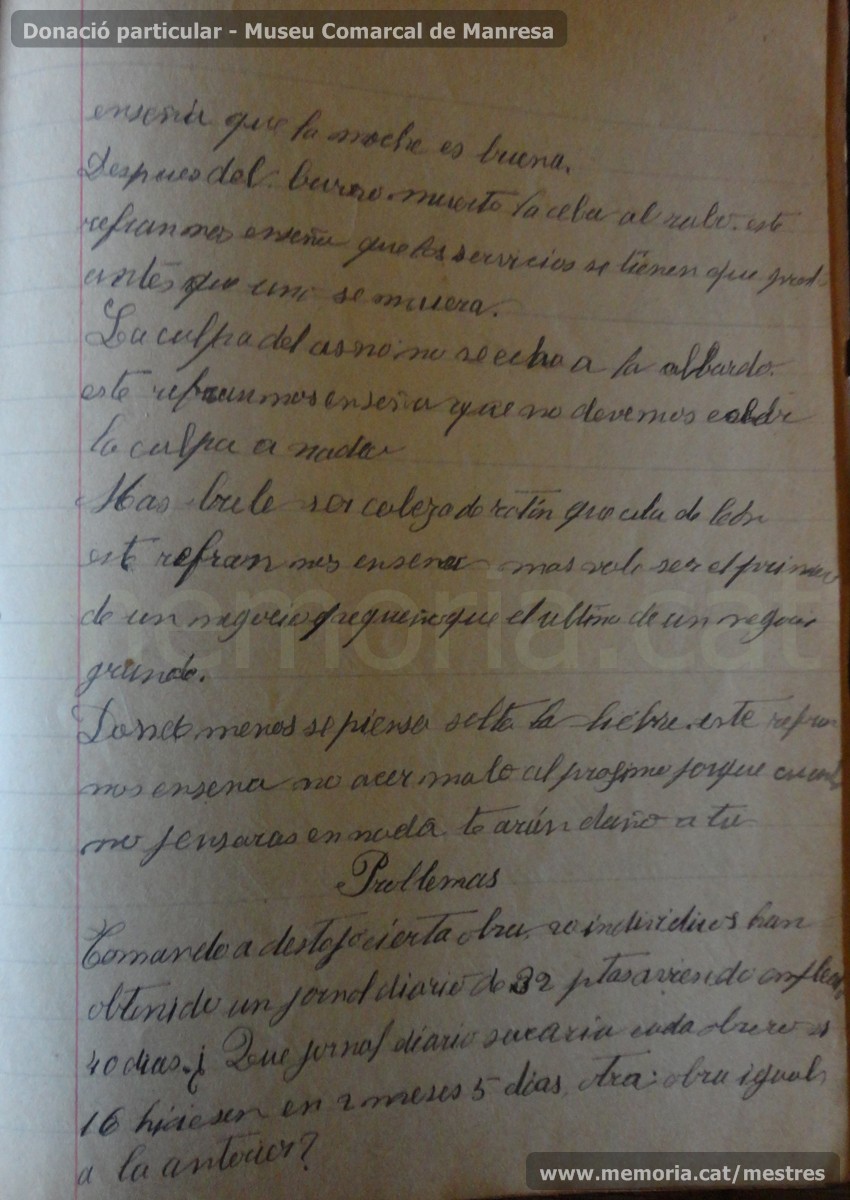 Donació particular - Museu Comarcal de Manresa
enseña que la noche es buena.
Despues del burro muerto la ceba al rabo. este
refran nos enseña que los servicios se tienen que
antes que uno se muera.
La culpa del asno no se echa a la albarda.
este refran nos enseña que no devemos echar
la culpa a nada
Mas bale ser cabeza de ratin que cula de león
este refran nos ensena mas vale ser el primero
de un negocio pequeño que el ultimo de un negocio
grande.
Donde menos se piensa salta la liebre. este refran
nos ensena no acer malo al progimo porque cuando
no pensaras en nada te arán daño a tu
Problemas
Tomando a destajo cierta obra, 20 individuos han
obtenido un jornal diario de 32 ptas aviendo
40 dias. ¿ Que jornal diario sacaria cada obrero si
16 hiciesen en 2 meses 5 dias, otra obra igual
a la anterior?
memoria.cat
www.memoria.cat/mestres